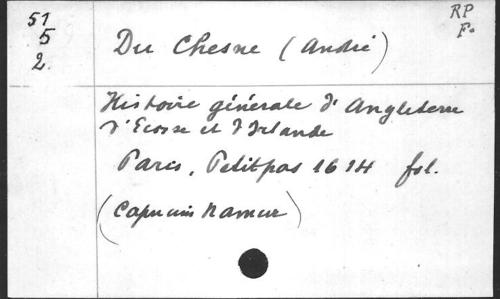 51
5
2.
RP
F.
Du Chesne (André)
Histoire générale d'Angleterre
d'Ecosse et d'Irlande
Paris, Petitpas 1614 fol.
(Capucins Namur)